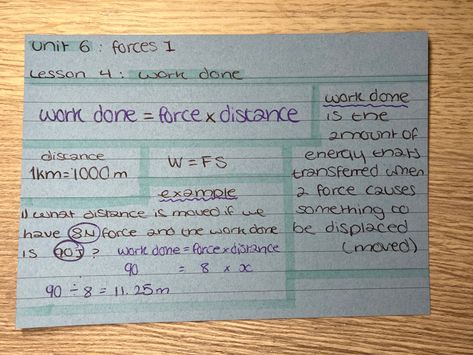 Unit 6 : forces 1
Lesson 4 : work done
work done = force x distance
distance
1km = 1000 m
W = FS
example
1) What distance is moved if we
have 8N force and the work done
is 90J ?
work done = force x distance
90 = 8 x x
90 ÷ 8 = 11.25m
work done
is the
amount of
energy thats
transferred when
a force causes
something to
be displaced
(moved)